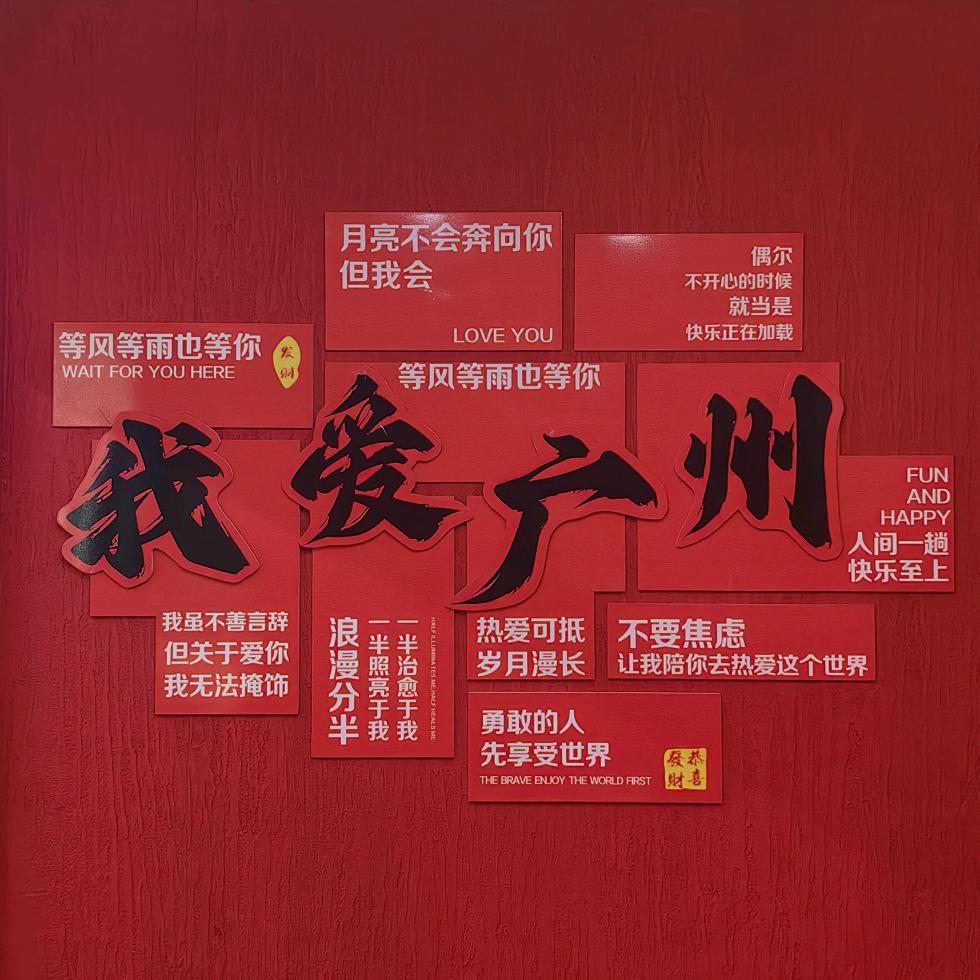 月亮不会奔向你
但我会
LOVE YOU
偶尔
不开心的时候
就当是
快乐正在加载
等风等雨也等你
WAIT FOR YOU HERE
发财
等风等雨也等你
我爱广州
FUN
AND
HAPPY
人间一趟
快乐至上
我虽不善言辞
但关于爱你
我无法掩饰
浪漫分半
一半照亮于我
一半治愈于我
HALF ILLUMINATES ME,HALF HEALS ME
热爱可抵
岁月漫长
不要焦虑
让我陪你去热爱这个世界
勇敢的人
先享受世界
THE BRAVE ENJOY THE WORLD FIRST
恭喜
發財